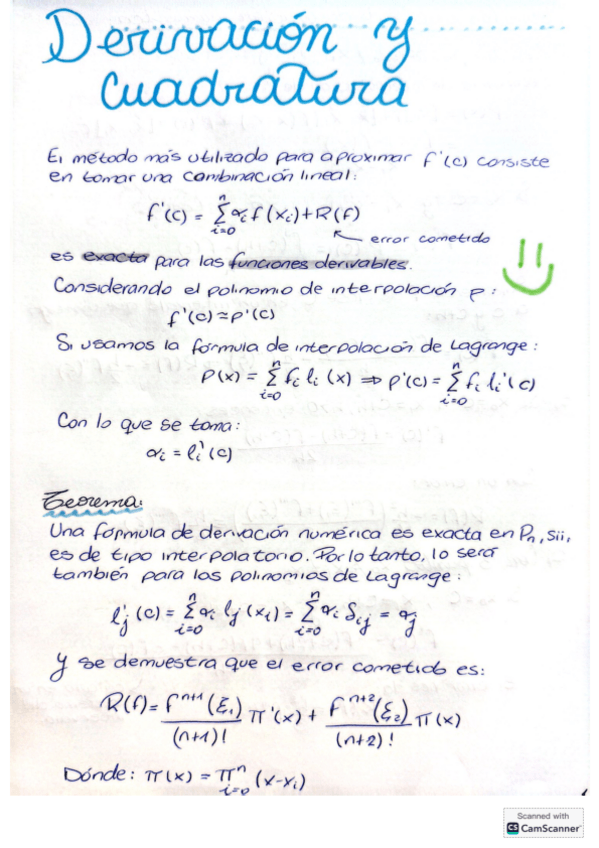 Derivación y
cuadratura
El método más utilizado para aproximar f'(c) consiste
en tomar una combinación lineal:
f'(c) = Σ_{i=0}^{n} αᵢ f(xᵢ) + R(f)
error cometido
es exacta para las funciones derivables.
Considerando el polinomio de interpolación p:
f'(c) ≃ p'(c)
Si usamos la fórmula de interpolación de Lagrange:
P(x) = Σ_{i=0}^{n} fᵢ lᵢ(x) ⇒ p'(c) = Σ_{i=0}^{n} fᵢ lᵢ'(c)
Con lo que se toma:
αᵢ = lᵢ'(c)
Teorema:
Una fórmula de derivación numérica es exacta en Pₙ, sii,
es de tipo interpolatorio. Por lo tanto, lo será
también para los polinomios de Lagrange:
l'ⱼ(c) = Σ_{i=0}^{n} αᵢ lⱼ(xᵢ) = Σ_{i=0}^{n} αᵢ δᵢⱼ = αⱼ
Y se demuestra que el error cometido es:
R(f) = f^{n+1}(ξ₁)/(n+1)! π'(x) + f^{n+2}(ξ₂)/(n+2)! π(x)
Dónde: π(x) = π_{i=0}^{n} (x-xᵢ)
Scanned with
CS CamScanner